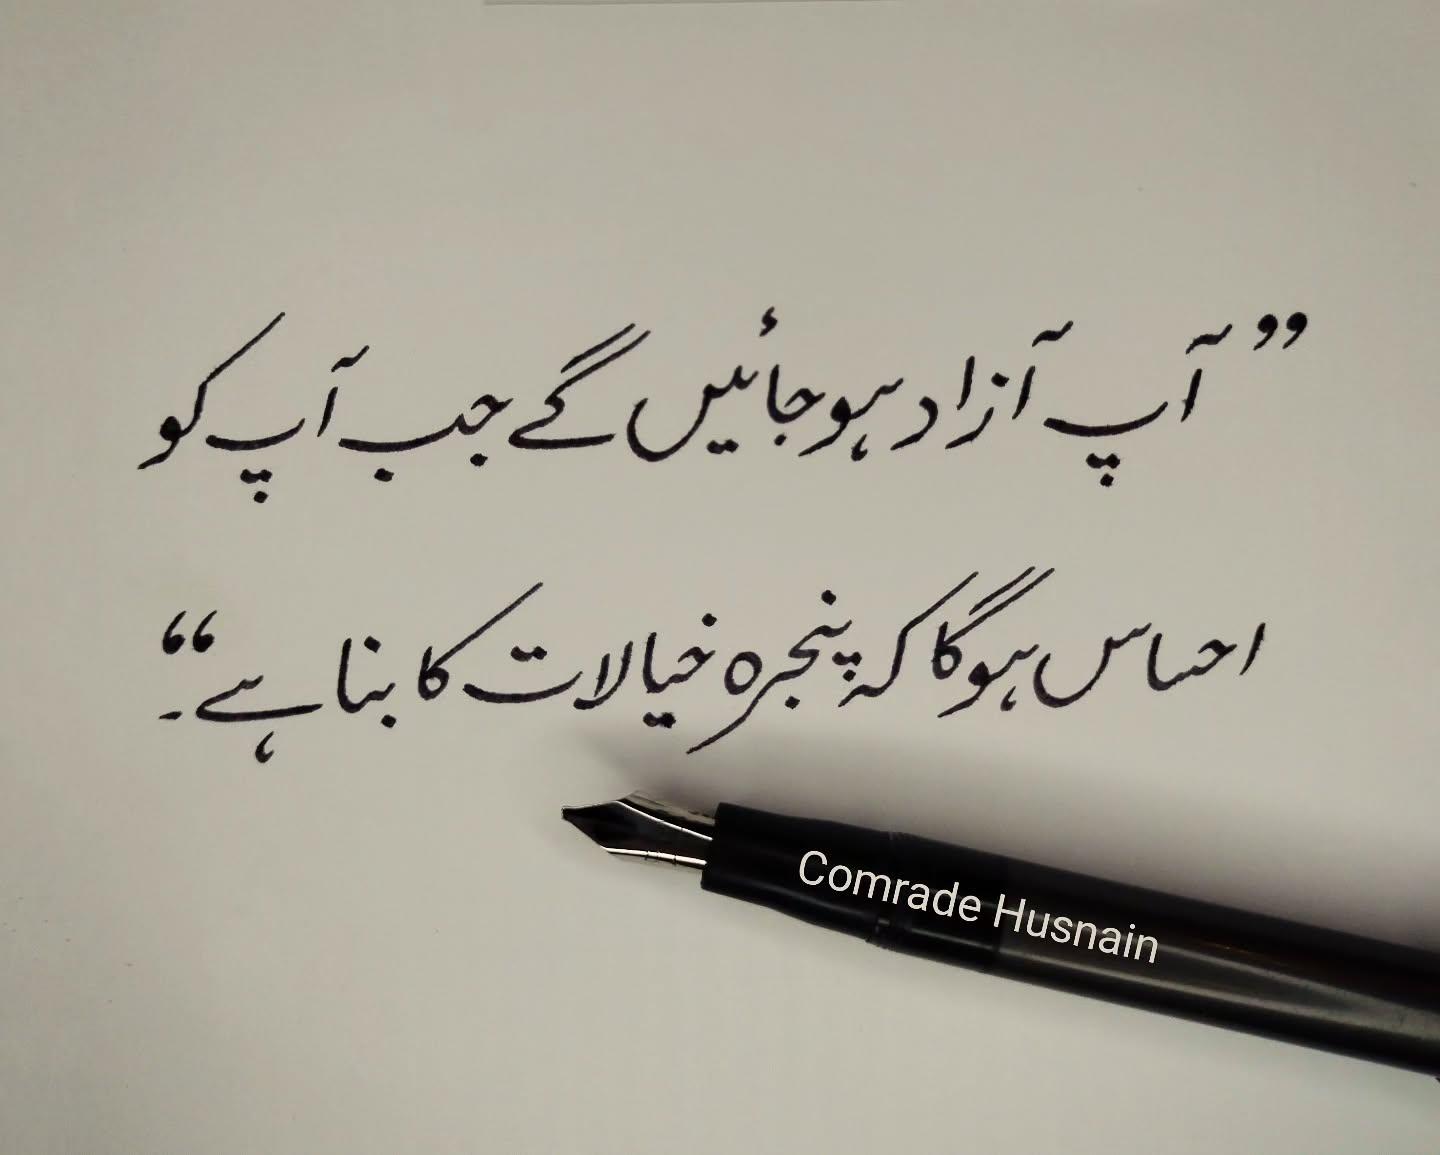 ”آپ آزاد ہو جائیں گے جب آپ کو
احساس ہوگا کہ پنجرہ خیالات کا بنا ہے۔“
Comrade Husnain